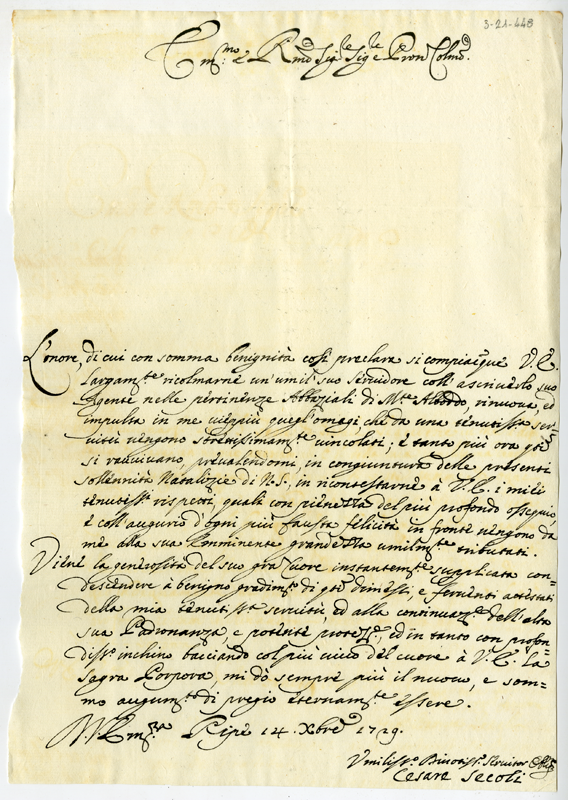 3-21-448
Em:mo e Rmo Sig:re Sig:re e Pron Colmo.
L'onore, di cui con somma benignità così preclara si compiacque V.E.
largam:te ricolmarne un' umil suo servidore coll' ascriverlo suo
Agente nelle pertinenze Abbaziali di M:te Albodo, rinuova, ed
impulta in me viepiù quegl' omagi, che da una tenutissa ser=
vitù vengono strettissimam:te vincolati; e tanto più ora qti
si ravvivano prevalendomi, in congiuntura delle presenti
sollennità Natalizie di N.S., in ricontestarne à V.E. i miei
tenutissi rispetti, quali con pienezza del più profondo ossequio,
e coll' augurio d'ogni più fausta felicità in fronte vengono da
me alla sua Emminente grandezza umilm:te tributati.
Viene la generosità del suo gra Cuore instantem:te supplicata con=
descendere à benigno gradim:to di qti dimessi, e ferventi attestati
della mia tenutissa servitù, ed alla continuaz:e dell' alta
sua Padronanza, e potente protez:e, ed in tanto con profon=
diss:o inchino bacciando col più vivo del cuore à V.E. la
Sagra Porpora, mi dò sempre più il nuovo, e som=
mo augum:to di pregio eternam:te essere.
D.V.Em:za Ripe 14. Xbre 1729.
Umiliss:o Divotiss:o Servitor Obligo
Cesare Secoli